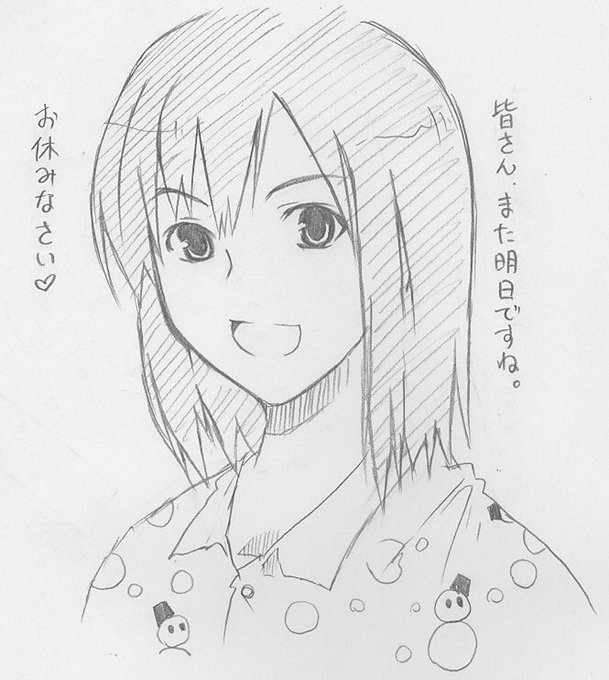 皆さん、また明日ですね。
お休みなさい♡